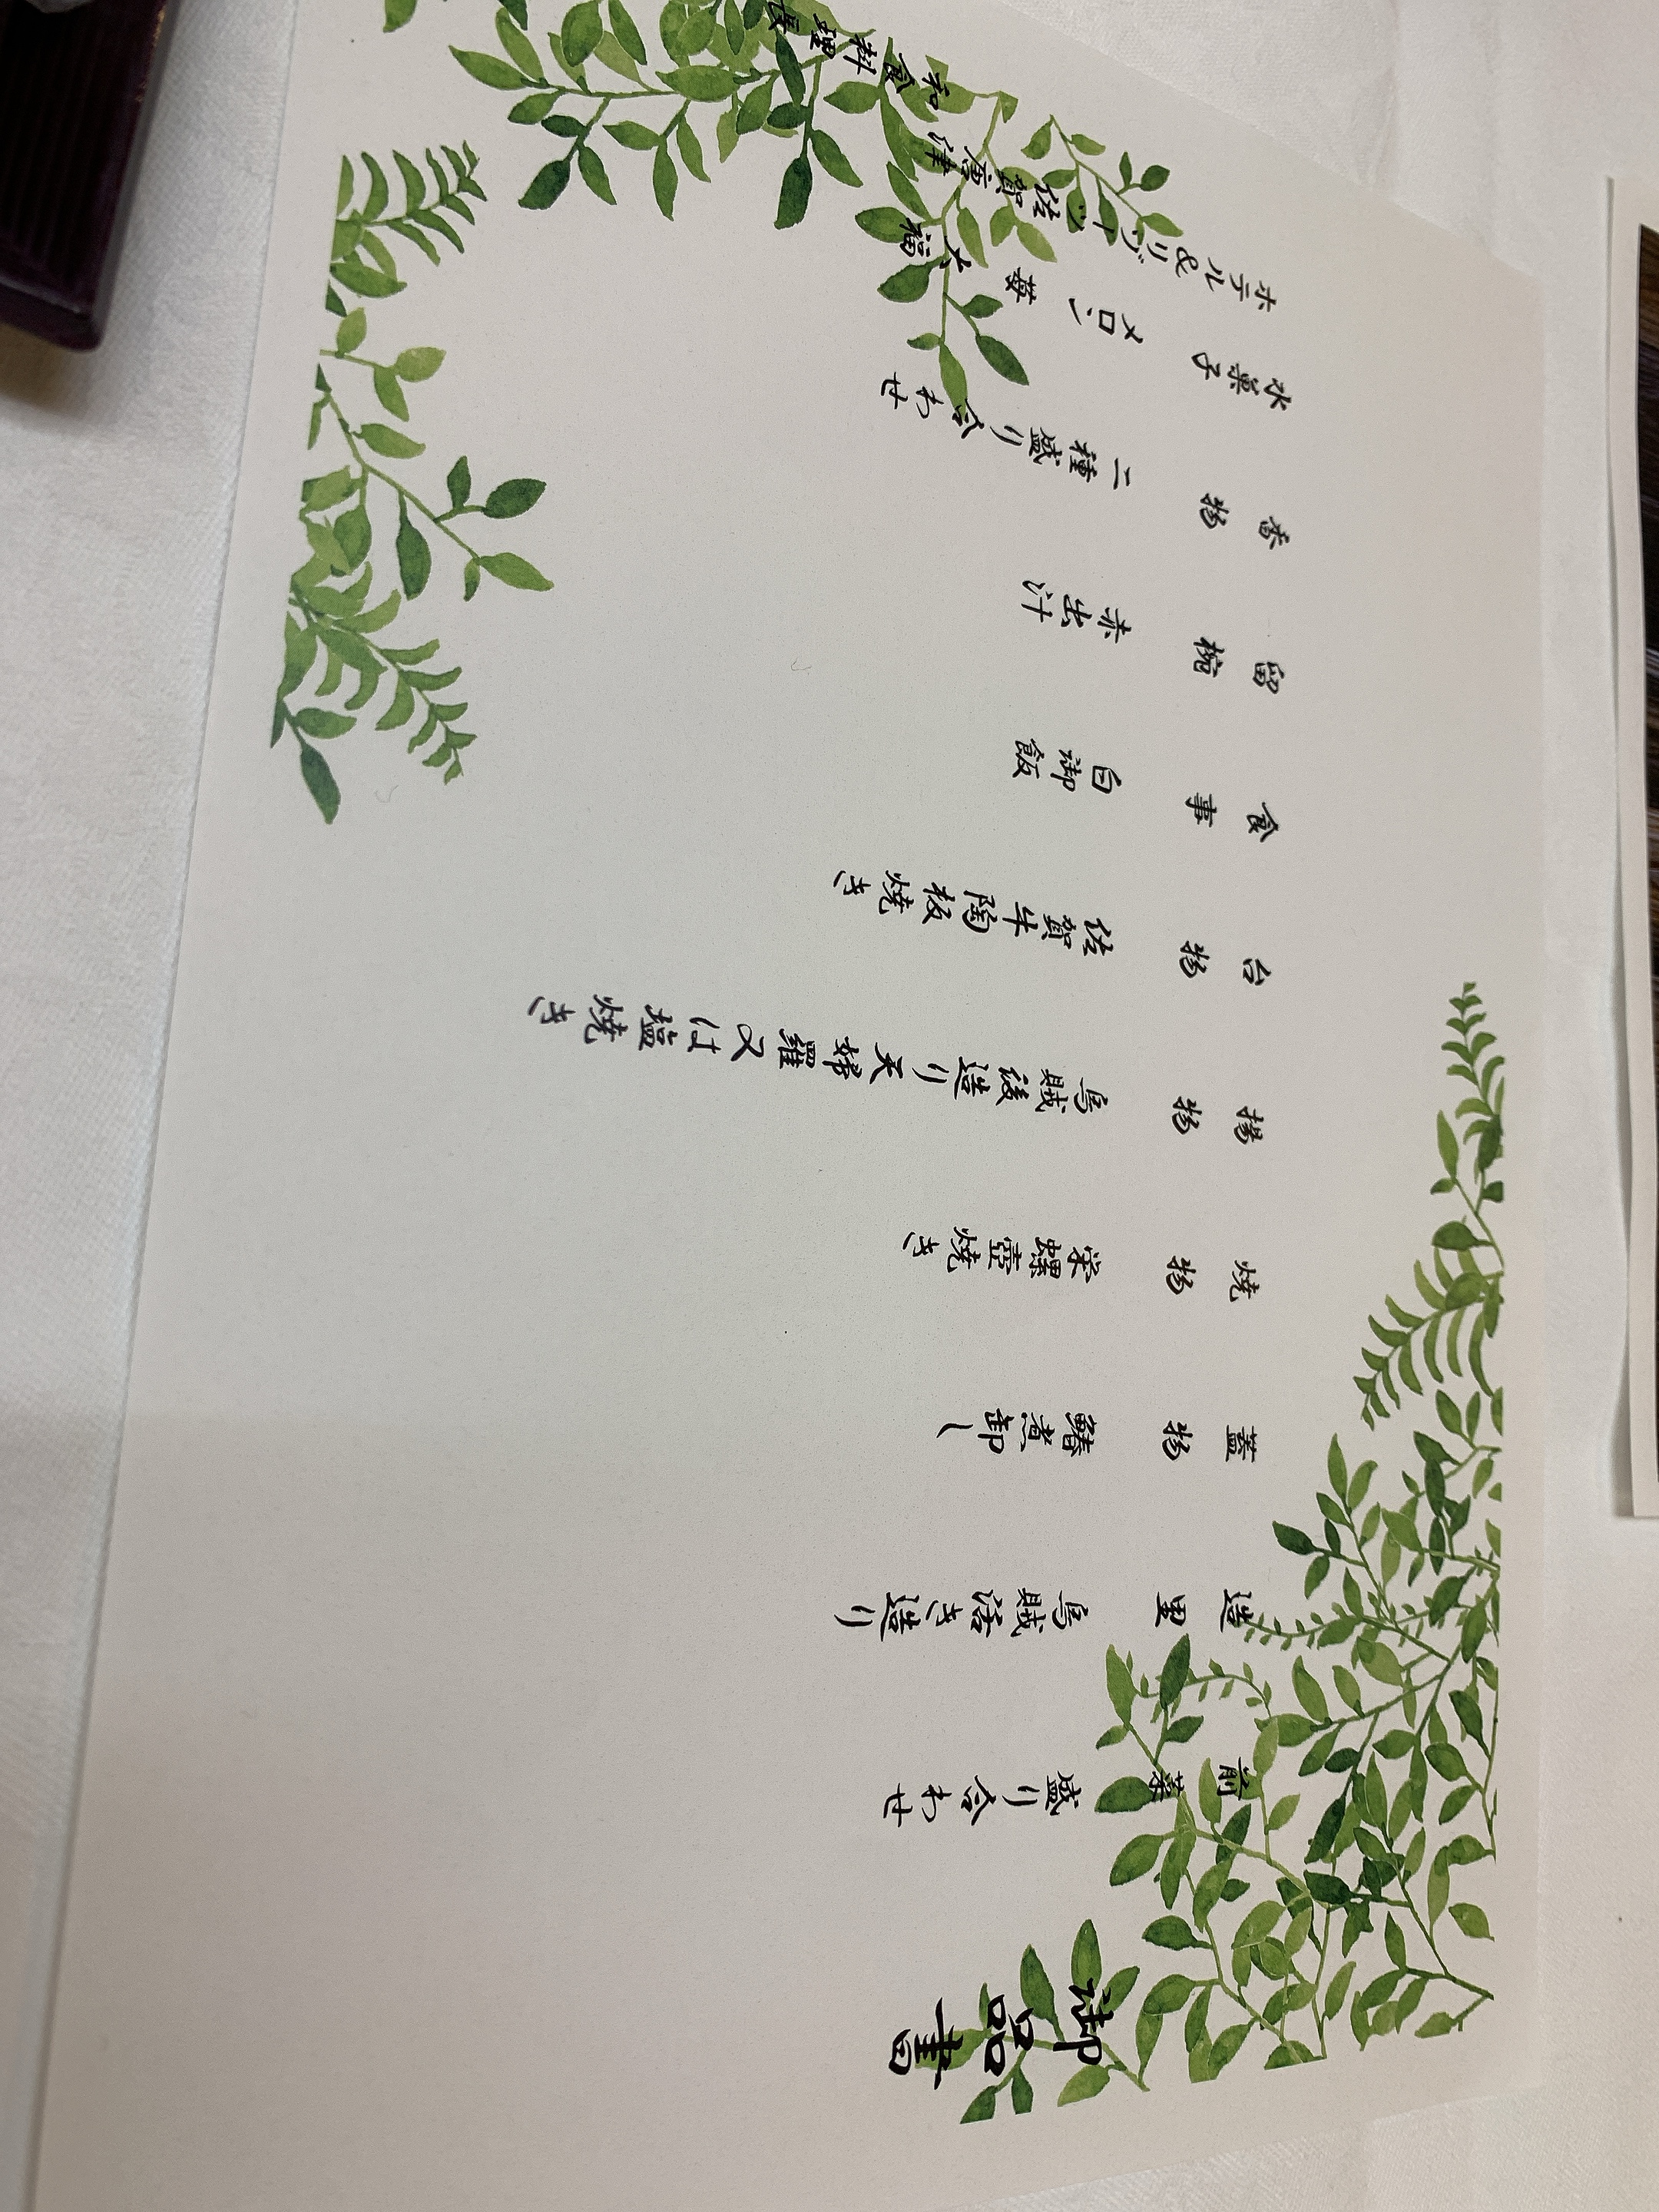 御品書
前菜 盛り合わせ
造里 烏賊活き造り
蓋物 鰆煮卸し
焼物 栄螺壺焼き
揚物 烏賊後造り天婦羅又は塩焼き
台物 佐賀牛陶板焼き
食事 白御飯
留椀 赤出汁
香物 二種盛り合わせ
水菓子 メロン 苺大福
ホテル&リゾーツ佐賀唐津
和食料理長